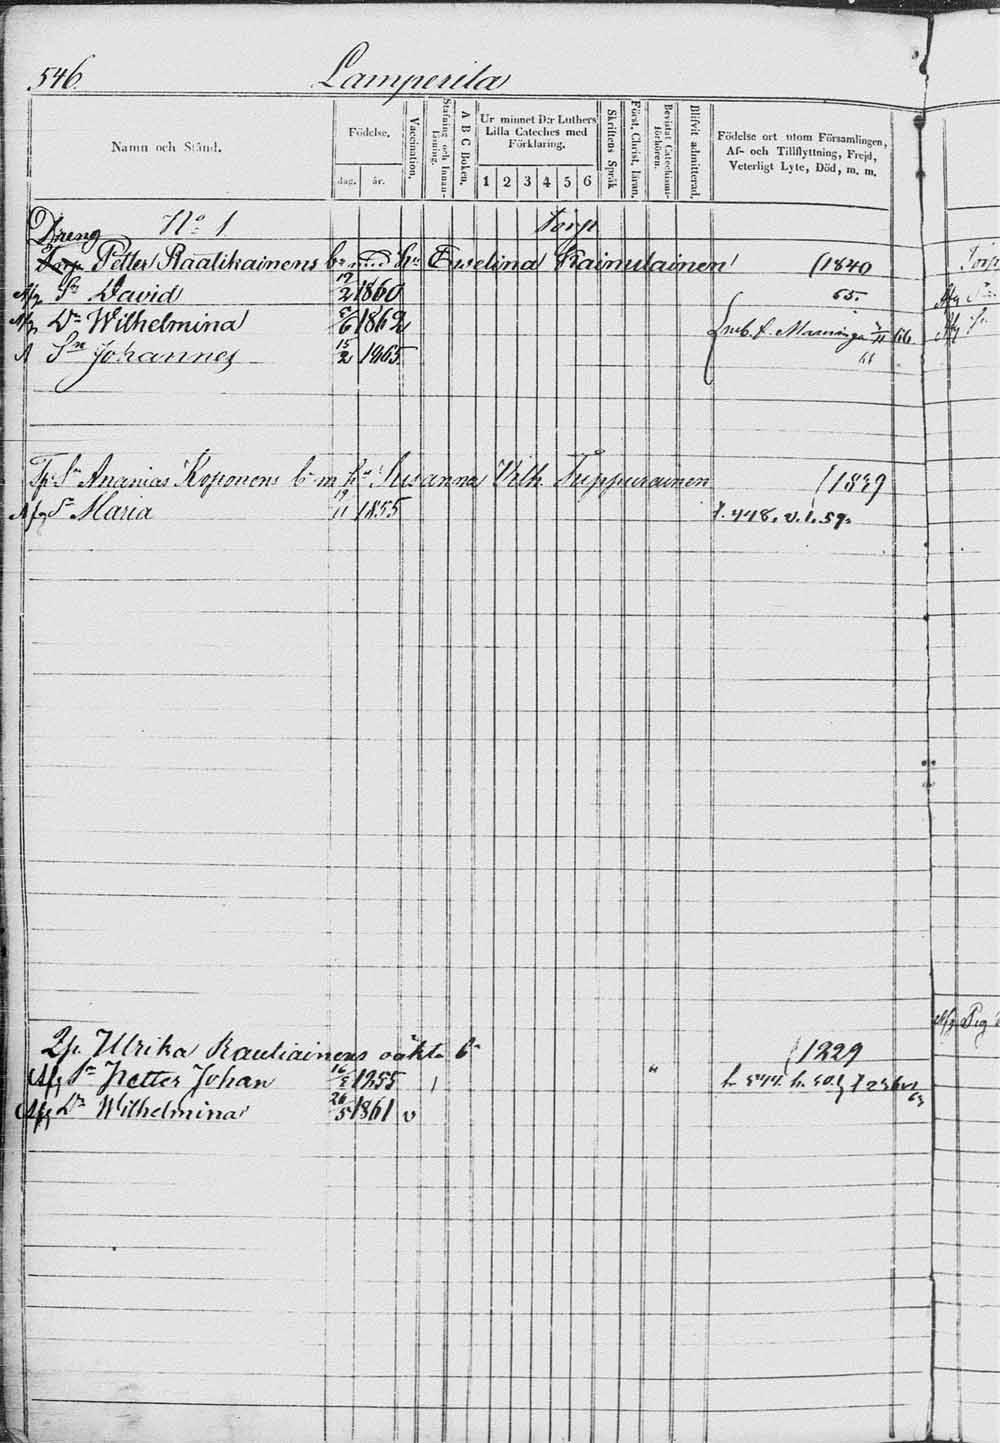 546.
Lamperila
Namn och Stånd.
Födelse,
dag. år.
Vaccination.
Stafning och Innan-läsning.
A B C Boken.
Ur minnet D:r Luthers Lilla Cateches med Förklaring.
1 2 3 4 5 6
Skriftens Språk
Först. Christ. läran.
Bevistat Catechismi-förhören.
Blifvit admitterad.
Födelse ort utom Församlingen, Af- och Tillflyttning, Frejd, Veterligt Lyte, Död, m. m.
N:o 1 Torp
Dreng
Torp. Petter Raatikainens b:n m h:u Ewelina Kainulainen (1840
Afg S:n David 12/2 1860 65.
Afg D:r Wilhelmina 5/6 1862 Maaninga 66
A S:n Johannes 15/2 1865
Tp S:n Ananias Koponens b:n m h:u Susanna Vilh. Tuppurainen (1839
Afg D:r Maria 19/11 1855 f. 448. v. l. 59.
Ulrika Rautiainens oäkta b:n (1229
Afg S:n Petter Johan 16/5 1855 1 "
Afg D:r Wilhelmina 26/5 1861 v
Torp
Afg
Afg
Afg Pig